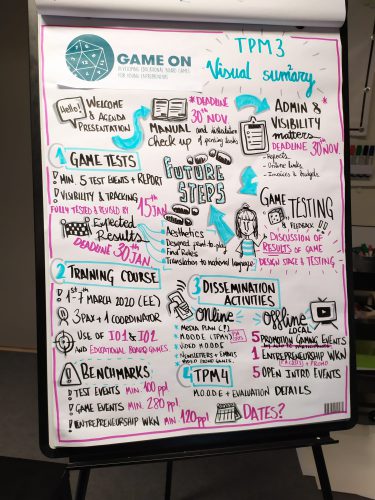 GAME ON
DEVELOPING EDUCATIONAL BOARD GAMES
FOR VISUAL ENTREPRENEURS
TPM3
Visual summary
Hello!
WELCOME
& AGENDA
PRESENTATION
*DEADLINE
30th NOV.
MANUAL and distribution
check up of printing tasks
ADMIN &
VISIBILITY
matters
DEADLINE 30th NOV.
- Reports
- Online links
- Invoices & budgets
1 GAME TESTS
MIN. 5 TEST EVENTS + REPORT
VISIBILITY & TRACKING
FULLY TESTED & REVISED BY 15th JAN
Expected
Results
DEADLINE 30th JAN
FUTURE
STEPS
Aesthetics
Designed, print to play
Final Rules
Translation to national language
GAME
TESTING
& FEEDBACK
DISCUSSION OF
RESULTS OF GAME
DESIGN STAGE & TESTING
2 TRAINING COURSE
1st-7th MARCH 2020 (EE)
3 PAX + 1 COORDINATOR
USE OF IO1 & IO2
AND EDUCATIONAL BOARD GAMES
BENCHMARKS:
TEST EVENTS MIN. 100 ppl
GAME EVENTS MIN. 280 ppl.
ENTREPRENEURSHIP WKN MIN 120 ppl.
3 DISSEMINATION
ACTIVITIES
ONLINE
MEDIA PLAN
MOODLE
NEWSLETTERS + EMAILS
Offline
LOCAL
5 PROMOTION GAMING EVENTS
1 ENTREPRENEURSHIP WKN
5 OPEN INTRO EVENTS
4 TPM4
MOODLE + EVALUATION DETAILS
DATES?